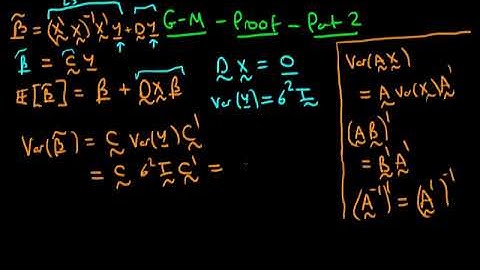 LS
β̃ = (X'X)⁻¹X'y + Dy
G-M - Proof - Part 2
β̃ = Cy
E[β̃] = β + DXβ
DX = 0
Var(y) = σ²I
Var(β̃) = C Var(y) C'
= C σ² I C' =
Var(AX)
= A Var(X) A'
(AB)'
= B'A'
(A⁻¹)' = (A')⁻¹